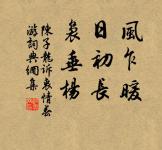 風乍暖
日初長
裊垂楊
陳子龍訴衷情春
游詞典網集